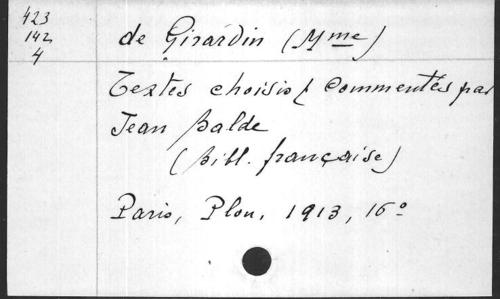 423
142
4
de Girardin (Mme)
Textes choisis / Commentés par
Jean Balde
(Bibl. française)
Paris, Plon, 1913, 16°